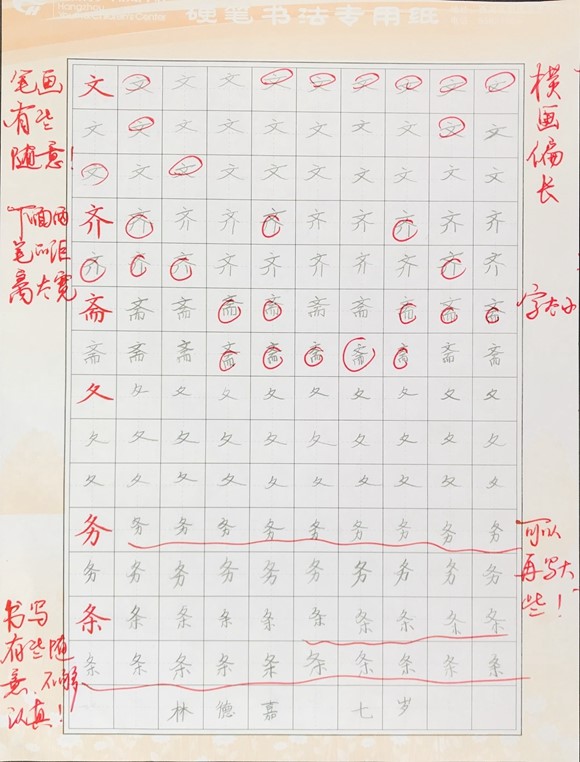 Hangzhou
Children's Center
硬笔书法专用纸
笔画
有些
随意！
下面两
笔的距
离太宽
书写
有些随
意、不够
认真！
文文文文文文文文文文
文文文文文文文文文文
文文文文文文文文文文
齐齐齐齐齐齐齐齐齐齐
齐齐齐齐齐齐齐齐齐齐
斋斋斋斋斋斋斋斋斋斋
斋斋斋斋斋斋斋斋斋斋
夂夂夂夂夂夂夂夂夂夂
夂夂夂夂夂夂夂夂夂夂
夂夂夂夂夂夂夂夂夂夂
务务务务务务务务务务
务务务务务务务务务务
条条条条条条条条条条
条条条条条条条条条条
林德嘉 七岁
横画偏长
字太小
可以
再写大
些！